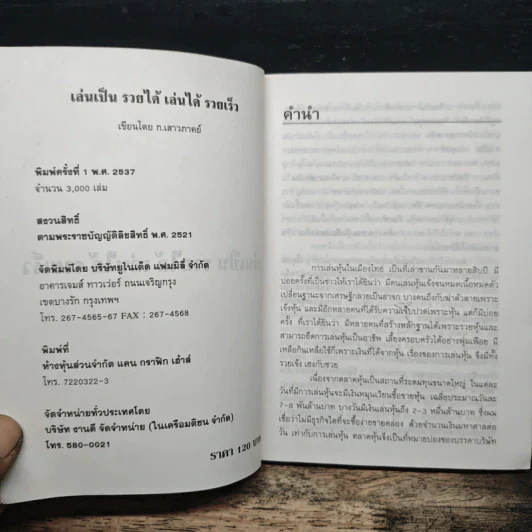 เล่นเป็น รวยได้ เล่นได้ รวยเร็ว
เขียนโดย ก.เสาวภาคย์
พิมพ์ครั้งที่ 1 พ.ศ. 2537
จำนวน 3,000 เล่ม
สงวนสิทธิ์
ตามพระราชบัญญัติลิขสิทธิ์ พ.ศ. 2521
จัดพิมพ์โดย บริษัทยูไนเต็ด แฟมมิลี่ จำกัด
อาคารเจมส์ ทาวเวอร์ ถนนเจริญกรุง
เขตบางรัก กรุงเทพฯ
โทร. 267-4565-67 FAX : 267-4568
พิมพ์ที่
ห้างหุ้นส่วนจำกัด แคน กราฟิก เฮ้าส์
โทร. 7220322-3
จัดจำหน่ายทั่วประเทศโดย
บริษัท งานดี จัดจำหน่าย (ในเครือมติชน จำกัด)
โทร. 580-0021
ราคา 120 บาท
คำนำ
การเล่นหุ้นในเมืองไทย เป็นที่เล่าขานกันมาหลายสิบปี มี
บ่อยครั้งที่เป็นข่าวให้เราได้ยินว่า มีคนเล่นหุ้นเจ๊งจนหมดเนื้อหมดตัว
เปลี่ยนฐานะจากเศรษฐีกลายเป็นยาจก บางคนถึงกับฆ่าตัวตายเพราะ
เจ๊งหุ้น และมีอีกหลายคนที่ได้รับความเจ็บปวดเพราะหุ้น แต่ก็มีบ่อย
ครั้ง ที่เราได้ยินว่า มีหลายคนที่สร้างหลักฐานได้เพราะรวยหุ้นและ
สามารถยึดการเล่นหุ้นเป็นอาชีพ เลี้ยงครอบครัวได้อย่างฟุ่มเฟือย มี
เหลือกินเหลือใช้ก็เพราะเงินที่ได้จากหุ้น เรื่องของการเล่นหุ้น จึงมีทั้ง
รวยเจ๊ง เฮงกับซวย
เนื่องจากตลาดหุ้นเป็นสถานที่ระดมทุนขนาดใหญ่ ในแต่ละ
วันที่มีการเล่นหุ้นจะมีเงินหมุนเวียนซื้อขายหุ้น เฉลี่ยประมาณวันละ
7-8 พันล้านบาท บางวันมีเงินเล่นหุ้นถึง 2-3 หมื่นล้านบาท ซึ่งผม
เชื่อว่าไม่มีธุรกิจใดที่จะซื้อง่ายขายคล่อง ด้วยจำนวนเงินมหาศาลต่อ
วัน เท่ากับการเล่นหุ้น ตลาดหุ้นจึงเป็นที่หมายปองของบรรดาบริษัท